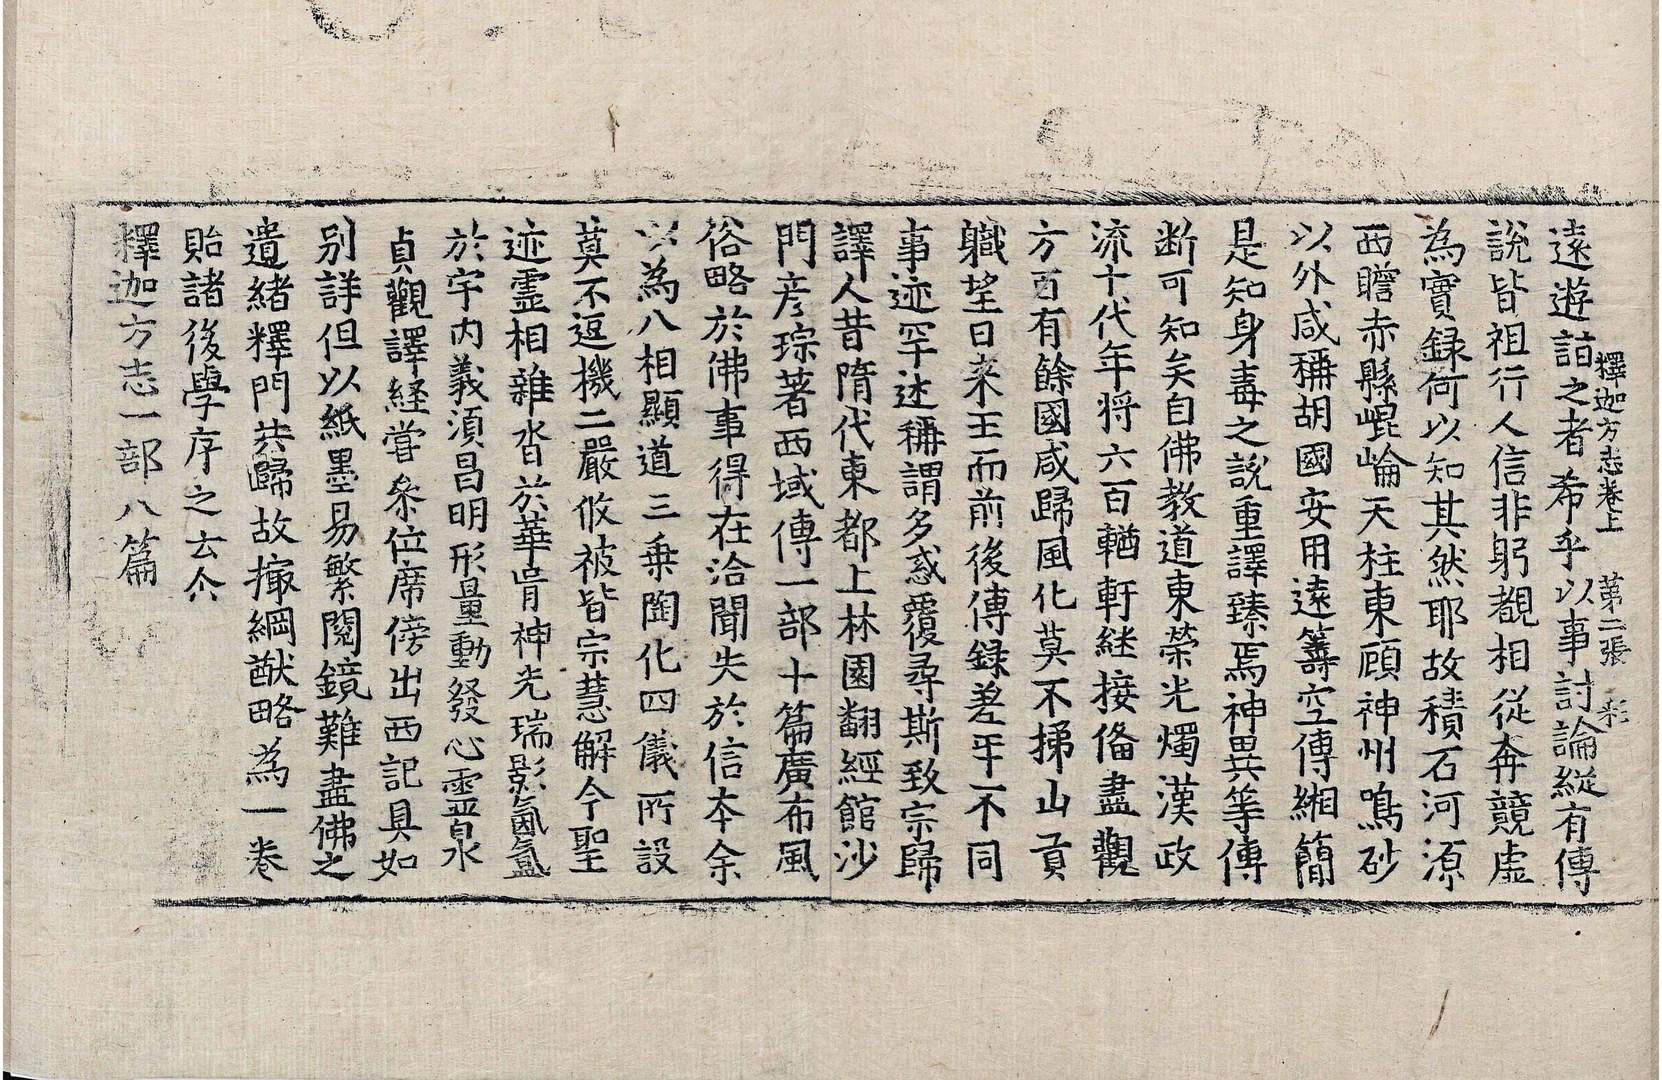 釋迦方志卷上 第二張 彩
遠遊詣之者希乎以事討論縱有傳
說皆祖行人信非躬覩相從奔競虛
為實録何以知其然耶故積石河源
西瞻赤縣崐崘天柱東顧神州鳴砂
以外咸稱胡國安用遠籌空傳緗簡
是知身毒之說重譯臻焉神異等傳
断可知矣自佛教道東榮光燭漢政
流十代年将六百輶軒継接俻盡觀
方百有餘國咸歸風化莫不梯山貢
軄望日来王而前後傳録差平不同
事迹罕述稱謂多惑覆尋斯致宗歸
譯人昔隋代東都上林園翻經館沙
門彦琮著西域傳一部十篇廣布風
俗略於佛事得在洽聞失於信本余
以為八相顯道三乗陶化四儀所設
莫不逗機二嚴攸被皆宗慧解今聖
迹霊相雜沓於華胥神光瑞影氤氳
於宇内義湏昌明形量動發心霊泉
貞觀譯経甞叅位席傍出西記具如
別詳但以紙墨易繁閱鏡難盡佛之
遺緒釋門共歸故撮綱猷略為一卷
貽諸後學序之云尒
釋迦方志一部八篇